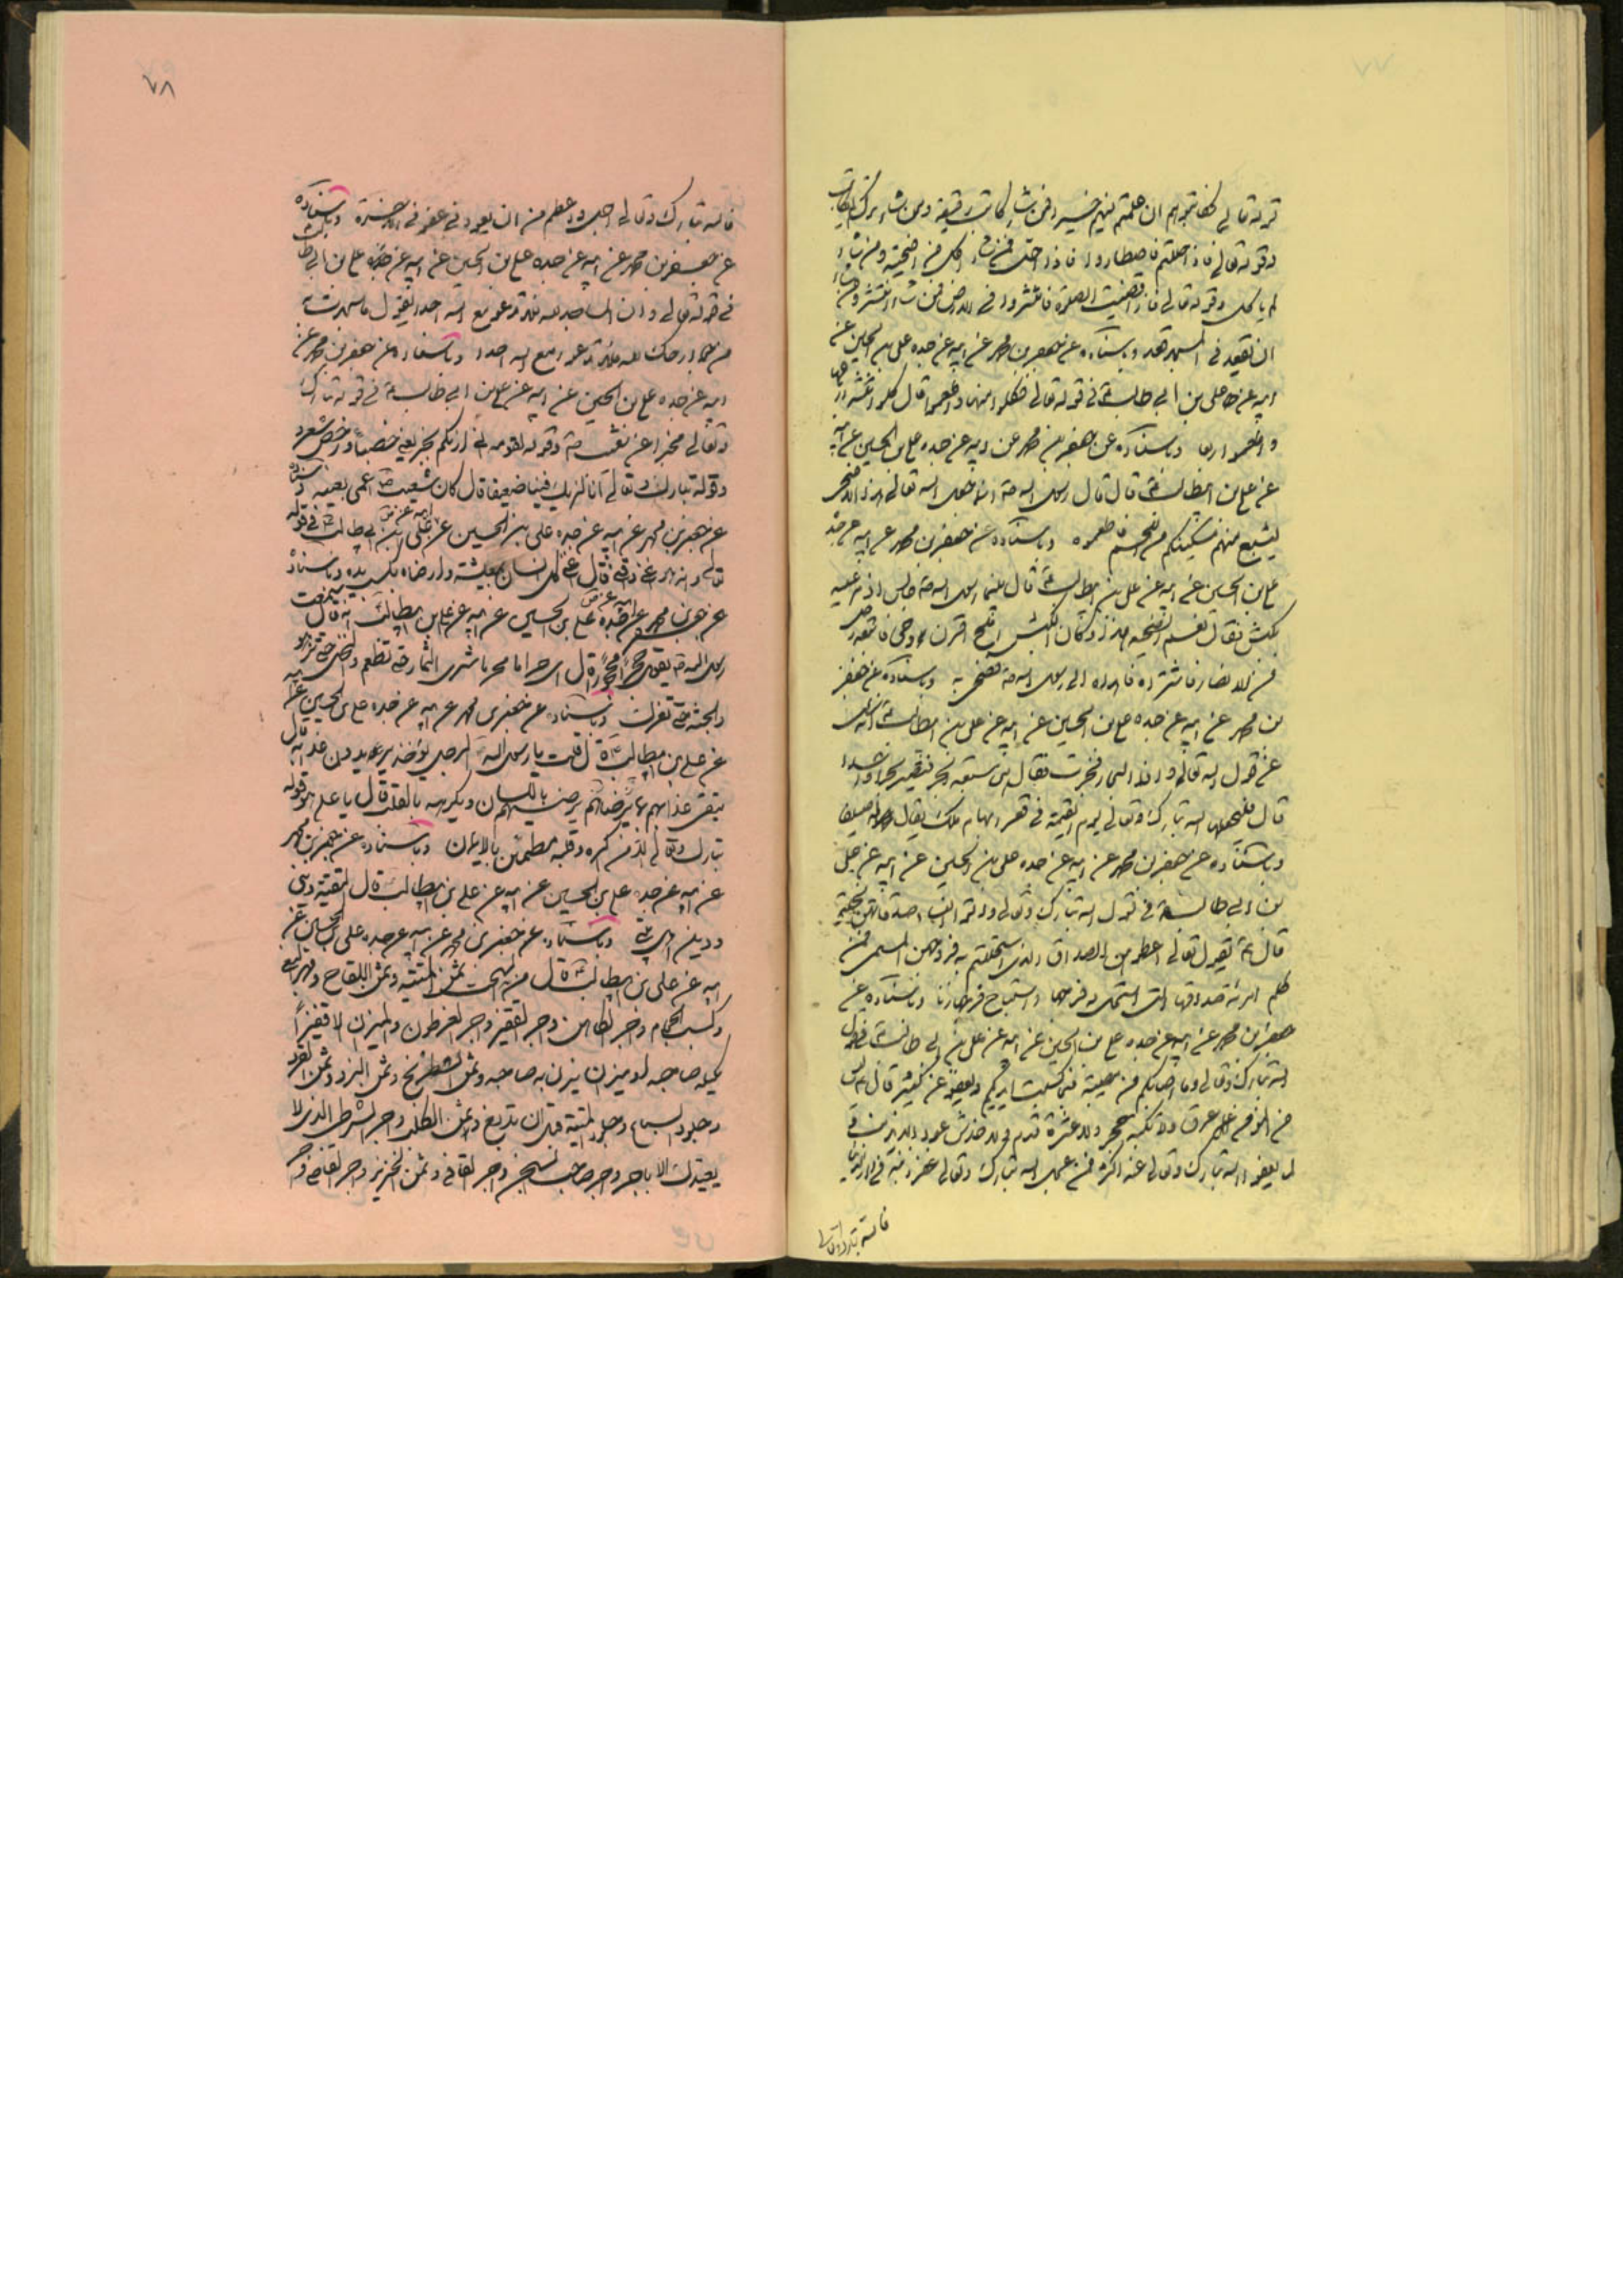 قوله تعالى فكاتبوهم ان علمتم فيهم خيرا فمن شاء كاتب رقيقه ومن شاء ترك الكتاب
وقوله تعالى فاذا حللتم فاصطادوا فاذا احل فمن شاء اكل من اضحيته ومن شاء
لم ياكل وقوله تعالى فاذا قضيت الصلوة فانتشروا في الارض فمن شاء انتشر ومن شاء
ان يقعد في المسجد قعد وباسناده عن جعفر بن محمد عن ابيه عن جده علي بن الحسين عن
ابيه عن علي بن ابي طالب ع في قوله تعالى فكلوا منها واطعموا قال كلوا
واطعموا وباسناده عن جعفر بن محمد عن ابيه عن جده علي بن الحسين عن ابيه
عن علي بن ابيطالب ع قال قال رسول الله ص انما جعل الله تعالى هذا الاضحى
ليشبع منهم مسكينكم من اللحم فاطعموه وباسناده عن جعفر بن محمد عن ابيه عن جده
علي بن الحسين عن ابيه عن علي بن ابيطالب ع قال بينما رسول الله ص جالس اذ مر عليه
بكبش فقال نعم الاضحيه هذا وكان الكبش املح اقرن
من الانصار فاشتراه فاهداه الى رسول الله ص فضحى به وباسناده عن جعفر
بن محمد عن ابيه عن جده علي بن الحسين عن ابيه عن علي بن ابيطالب ع انه سئل
عن قول الله تعالى واذا البحار فجرت فقال
قال فيجعلها الله تبارك وتعالى يوم القيمة في قعر ابهام ملك يقال له
وباسناده عن جعفر بن محمد عن ابيه عن جده علي بن الحسين عن ابيه عن علي
بن ابي طالب ع في قول الله تبارك وتعالى واتوا النساء صدقاتهن نحلة
قال ع يقول تعالى اعطوهن الصداق الذي استحللتم به فروجهن المسمى فمن
ظلم امراة صداقها الذي استحل به فرجها استباح فرجها زنا وباسناده عن
جعفر بن محمد عن ابيه عن جده علي بن الحسين عن ابيه عن علي بن ابي طالب ع في قول
الله تبارك وتعالى وما اصابكم من مصيبة فبما كسبت ايديكم ويعفو عن كثير قال ع ليس
من عرق ولا نكبة حجر ولا عثرة قدم ولا خدش عود الا بذنب
لما يعفو الله تبارك وتعالى عنه اكثر فمن عجل الله تبارك وتعالى عقوبة ذنبه في الدنيا
فالله تبارك وتعالى
٧٨
فالله تبارك وتعالى اجل واعظم من ان يعود في عفوه في الاخرة وباسناده
عن جعفر بن محمد عن ابيه عن جده علي بن الحسين عن ابيه عن جده علي بن ابي طالب
في قوله تعالى وان المساجد لله فلا تدعوا مع الله احدا يقول ما سجدت به
من جوارحك لله فلا تدعوا مع الله احدا وباسناده عن جعفر بن محمد عن
ابيه عن جده علي بن الحسين عن ابيه عن علي بن ابي طالب ع في قوله تبارك
وتعالى مخبرا عن شعيب ع وقوله لقومه اني اريكم بخير يعني خصبا ورخص سعر
وقوله تبارك وتعالى انا لنريك فينا ضعيفا قال كان شعيب ع اعمى يعنيه وباسناده
عن جعفر بن محمد عن ابيه عن جده علي بن الحسين عن ابيه عن علي بن ابي طالب ع في قوله
تعالى وانه هو اغنى واقنى قال اغنى كل انسان بمعيشته وارضاه بكسب يده وباسناده
عن جعفر بن محمد عن ابيه عن جده علي بن الحسين عن ابيه عن علي بن ابيطالب انه قال سمعت
رسول الله ص يقول حجرا محجورا قال اي حراما محرما شرى الثمار حتى تطعم والنخل حتى تزهو
والحبة حتى تفرك وباسناده عن جعفر بن محمد عن ابيه عن جده علي بن الحسين عن ابيه
عن علي بن ابيطالب ع قال قلت يا رسول الله الرجل يؤخذ يريدون عذابه قال
يتقي عذابهم بما يرضيهم باللسان ويكرهه بالقلب قال يا علي هو قوله
تبارك وتعالى الا من اكره وقلبه مطمئن بالايمان وباسناده عن جعفر بن محمد
عن ابيه عن جده علي بن الحسين عن ابيه عن علي بن ابيطالب ع قال التقية ديني
ودين اهل بيتي وباسناده عن جعفر بن محمد عن ابيه عن جده علي بن الحسين عن
ابيه عن علي بن ابيطالب ع قال من السحت ثمن الميتة وثمن اللقاح ومهر البغي
وكسب الحجام واجر الكاهن واجر القفيز واجر الفرطون والميزان الا قفيزا
يكيله صاحبه او ميزان يزن به صاحبه وثمن الشطرنج وثمن النرد وثمن القرد
وجلود السباع وجلود الميتة قبل ان تدبغ وثمن الكلب واجر الشرطي الذي لا
يعينك الا باجر واجر صاحب السجن واجر القافي وثمن الخنزير واجر القاضي واجر